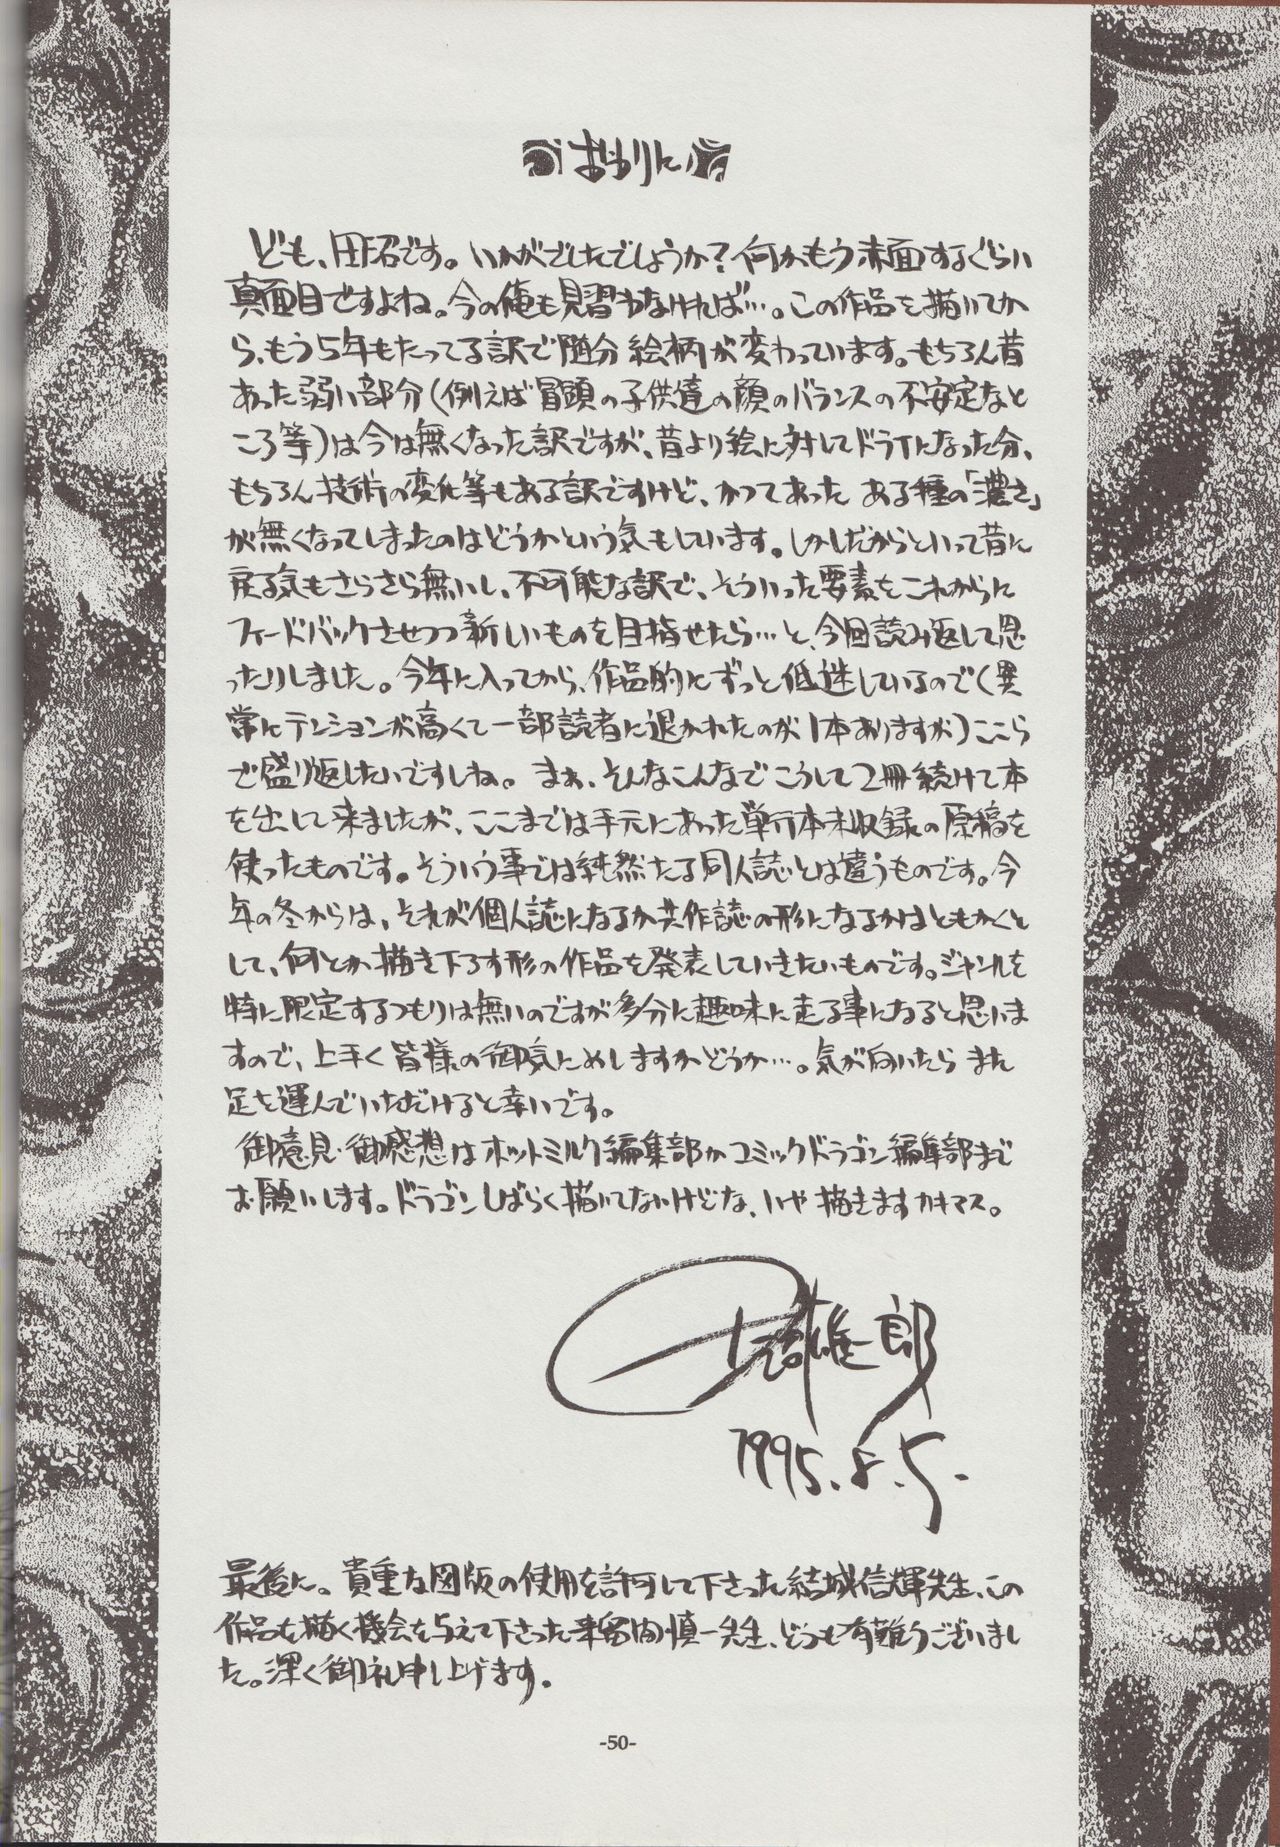 おわりに
ども、田沼です。いかがでしたでしょうか？何かもう赤面するぐらい
真面目ですよね。今の俺も見習わなければ…。この作品を描いてか
ら、もう5年もたってる訳で随分絵柄が変わっています。もちろん昔
あった弱い部分(例えば冒頭の子供達の顔のバランスの不安定なと
ころ等)は今は無くなった訳ですが、昔より絵に対してドライになった分、
もちろん技術の変化等もある訳ですけど、かつてあった ある種の「濃さ」
が無くなってしまったのはどうかという気もしています。しかしだからといって昔に
戻る気もさらさら無いし、不可能な訳で、そういった要素をこれからに
フィードバックさせつつ新しいものを目指せたら…と、今回読み返して思
ったりしました。今年に入ってから、作品的にずっと低迷しているので(異
常にテンションが高くて一部読者に退かれたのが1本ありますが)ここら
で盛り返したいですしね。まぁ、そんなこんなでこうして2冊続けて本
を出して来ましたが、ここまでは手元にあった単行本未収録の原稿を
使ったものです。そういう事では純然たる同人誌とは違うものです。今
年の冬からは、それが個人誌になるか共作誌の形になるかはともかくと
して、何とか描き下ろす形の作品を発表していきたいものです。ジャンルを
特に限定するつもりは無いのですが多分に趣味に走る事になると思いま
すので、上手く皆様の御気にめしますかどうか…。気が向いたらまた
足を運んでいただけると幸いです。
御意見・御感想はホットミルク編集部かコミックドラゴン編集部まで
お願いします。ドラゴンしばらく描いてないけどな、いや描きますカキマス。
田沼雄一郎
1995.8.5.
最後に。貴重な図版の使用を許可して下さった結城信輝先生、この
作品を描く機会を与えて下さった来留間慎一先生、どうも有難うございまし
た。深く御礼申し上げます。
-50-